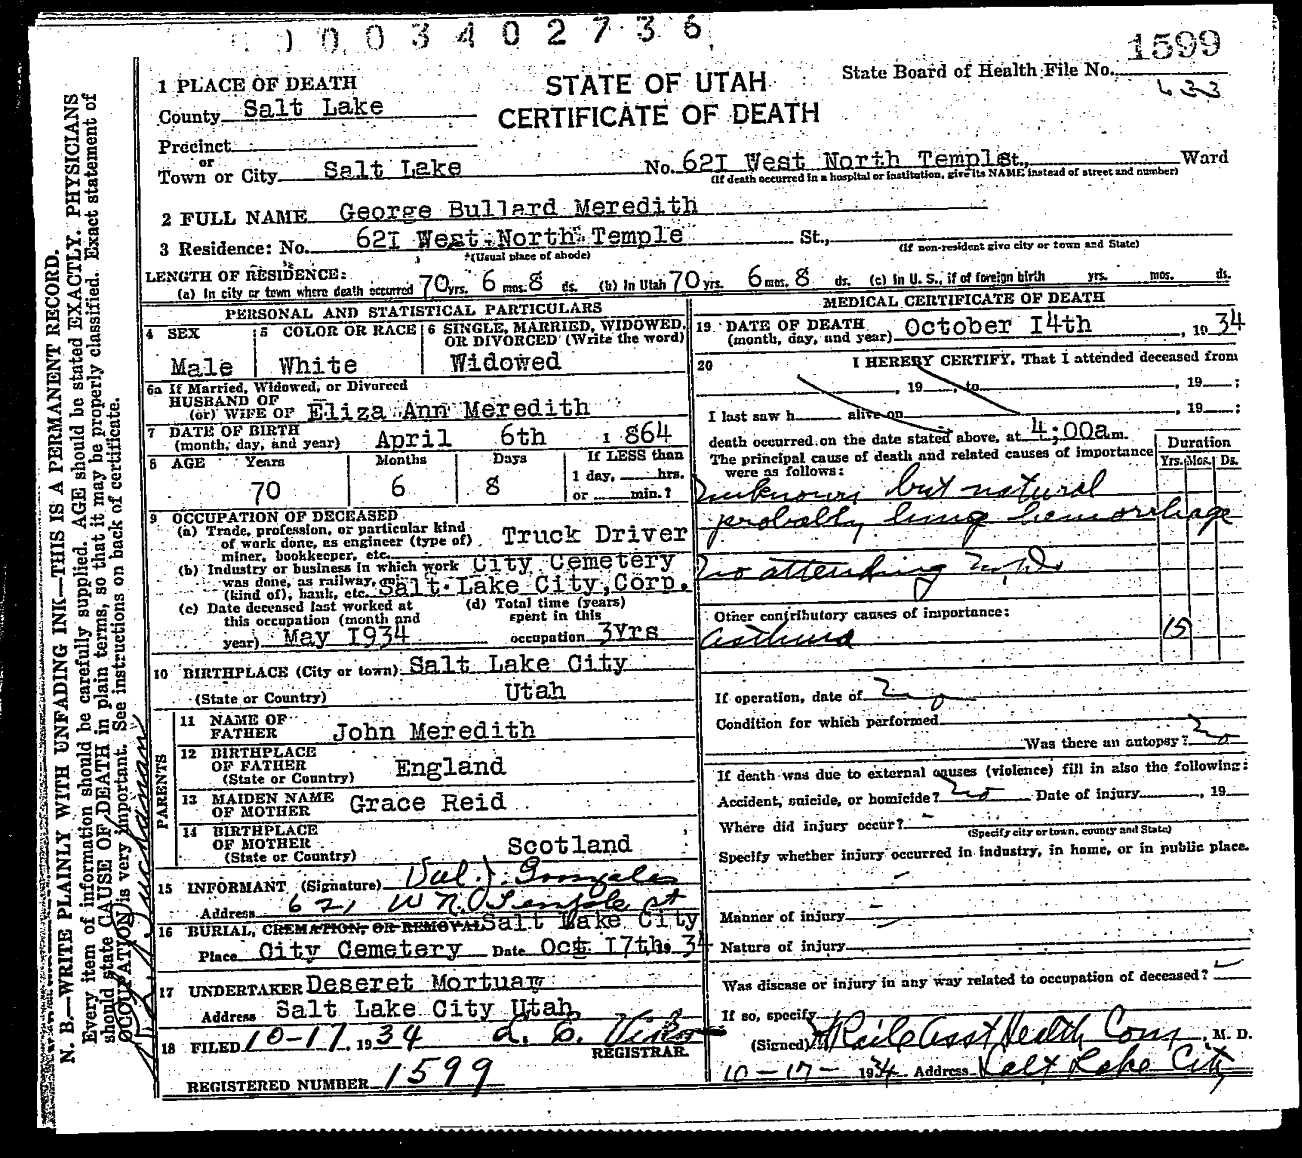 0003402736
1599
State Board of Health File No.
633
STATE OF UTAH
CERTIFICATE OF DEATH
1 PLACE OF DEATH
County Salt Lake
Precinct
or
Town or City Salt Lake No. 621 West North Temple St., Ward
(If death occurred in a hospital or institution, give its NAME instead of street and number)
2 FULL NAME George Bullard Meredith
3 Residence: No. 621 West North Temple St.,
(Usual place of abode) (If non-resident give city or town and State)
LENGTH OF RESIDENCE:
(a) In city or town where death occurred 70 yrs. 6 mos. 8 ds. (b) In Utah 70 yrs. 6 mos. 8 ds. (c) In U. S., if of foreign birth yrs. mos. ds.
PERSONAL AND STATISTICAL PARTICULARS
4 SEX
Male
5 COLOR OR RACE
White
6 SINGLE, MARRIED, WIDOWED, OR DIVORCED (Write the word)
Widowed
6a If Married, Widowed, or Divorced
HUSBAND OF
(or) WIFE OF Eliza Ann Meredith
7 DATE OF BIRTH
(month, day, and year) April 6th 1864
8 AGE Years Months Days If LESS than
1 day, hrs.
or min.?
70 6 8
9 OCCUPATION OF DECEASED
(a) Trade, profession, or particular kind
of work done, as engineer (type of) Truck Driver
miner, bookkeeper, etc.
(b) Industry or business in which work City Cemetery
was done, as railway,
(kind of), bank, etc. Salt Lake City, Corp.
(c) Date deceased last worked at
this occupation (month and
year) May 1934
(d) Total time (years)
spent in this
occupation 3yrs
10 BIRTHPLACE (City or town) Salt Lake City
(State or Country) Utah
PARENTS
11 NAME OF
FATHER John Meredith
12 BIRTHPLACE
OF FATHER England
(State or Country)
13 MAIDEN NAME
OF MOTHER Grace Reid
14 BIRTHPLACE
OF MOTHER
(State or Country) Scotland
15 INFORMANT (Signature) Val. J. Gonzales
Address 621 W N. Temple st
16 BURIAL, CREMATION, OR REMOVAL Salt Lake City
Place City Cemetery Date Oct 17th, 34
17 UNDERTAKER Deseret Mortuary
Address Salt Lake City Utah
18 FILED 10-17, 1934
REGISTRAR.
REGISTERED NUMBER 1599
MEDICAL CERTIFICATE OF DEATH
19 DATE OF DEATH
(month, day, and year) October 14th, 1934
20 I HEREBY CERTIFY, That I attended deceased from
, 19 , to , 19 ;
I last saw h alive on , 19 ;
death occurred on the date stated above, at 4:00a m.
The principal cause of death and related causes of importance
were as follows:
Duration
Yrs. Mos. Ds.
unknown but natural
probably lung hemorrhage
no attending M.D.
Other contributory causes of importance:
asthma 15
If operation, date of no
Condition for which performed
Was there an autopsy? no
If death was due to external causes (violence) fill in also the following:
Accident, suicide, or homicide? no Date of injury , 19
Where did injury occur?
(Specify city or town, county and State)
Specify whether injury occurred in industry, in home, or in public place.
Manner of injury
Nature of injury
Was disease or injury in any way related to occupation of deceased?
If so, specify
(Signed) Asst Health Com, M. D.
10-17-1934 Address Salt Lake City
N. B.—WRITE PLAINLY WITH UNFADING INK—THIS IS A PERMANENT RECORD.
Every item of information should be carefully supplied. AGE should be stated EXACTLY. PHYSICIANS
should state CAUSE OF DEATH in plain terms, so that it may be properly classified. Exact statement of
OCCUPATION is very important. See instructions on back of certificate.